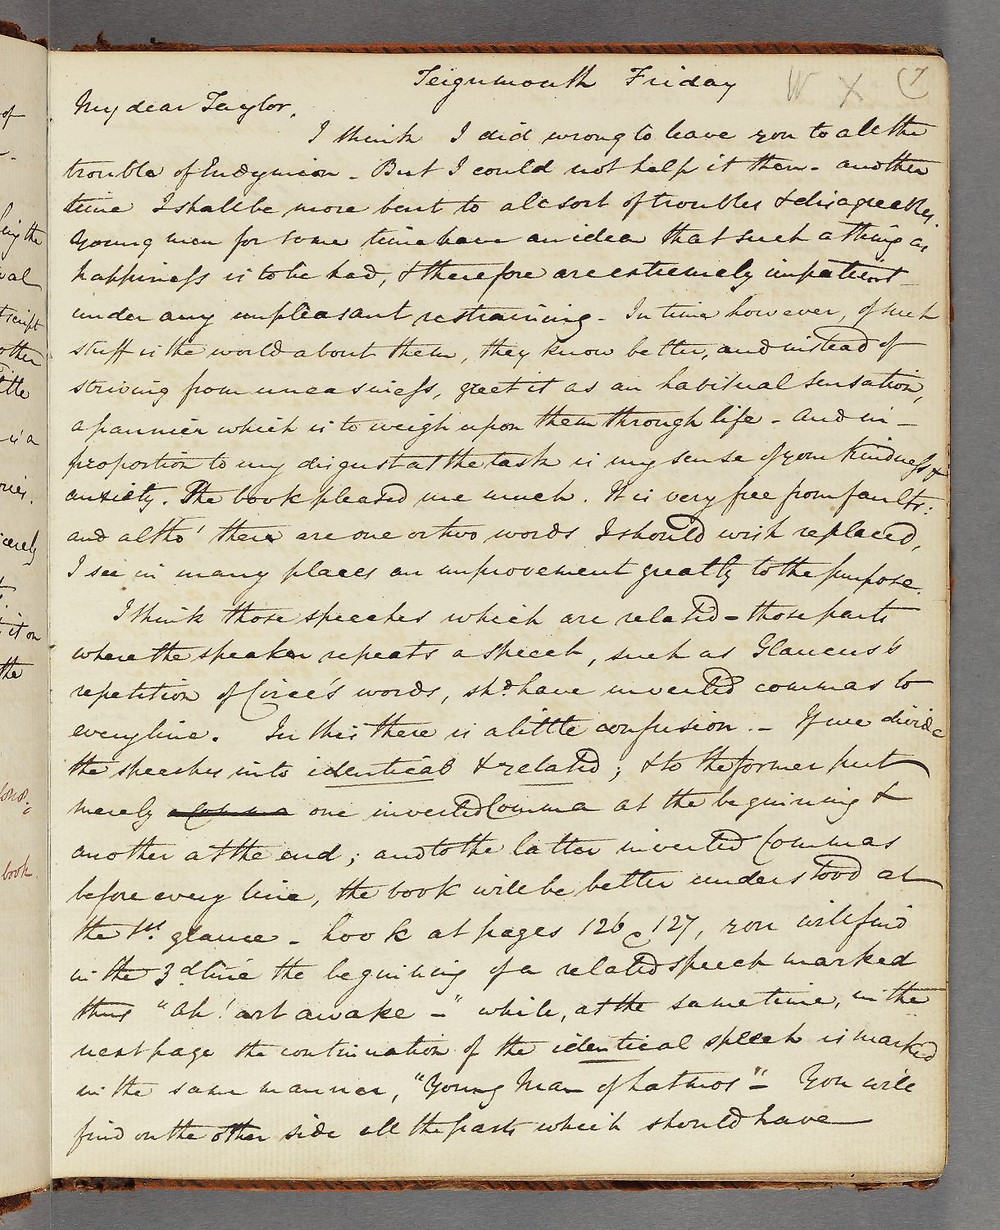 of
Teignmouth Friday
W X 7
My dear Taylor,
I think I did wrong to leave you to all the
trouble of Endymion - But I could not help it then - another
time I shall be more bent to all sort of troubles & disagreeables.
Young men for some time have an idea that such a thing as
happiness is to be had, & therefore are extremely impatient
under any unpleasant restraining - In time however, of such
stuff is the world about them, they know better, and instead of
striving from uneasiness, greet it as an habitual sensation,
a pannier which is to weigh upon them through life - And in -
proportion to my disgust at the task is my sense of your kindness &
anxiety. The book pleased me much. It is very free from faults:
and altho' there are one or two words I should wish replaced,
I see in many places an improvement greatly to the purpose.
I think those speeches which are related - those parts
where the speaker repeats a speech, such as Glaucus's
repetition of Circe's words, shd have inverted commas to
every line. In this there is a little confusion. - If we divide
the speeches into identical & related; & to the former put
merely a Comma one inverted Comma at the beginning &
another at the end; and to the latter inverted Commas
before every line, the book will be better understood at
the 1st glance - Look at pages 126, 127, you will find
in the 3d line the beginning of a related speech marked
thus "Ah! art awake -" while, at the same time, in the
next page the continuation of the identical speech is marked
in the same manner, "Young Man of Latmos" - You will
find on the other side all the parts which should have
ing the
script
other
ttle
is a
cerely
it on
the
book